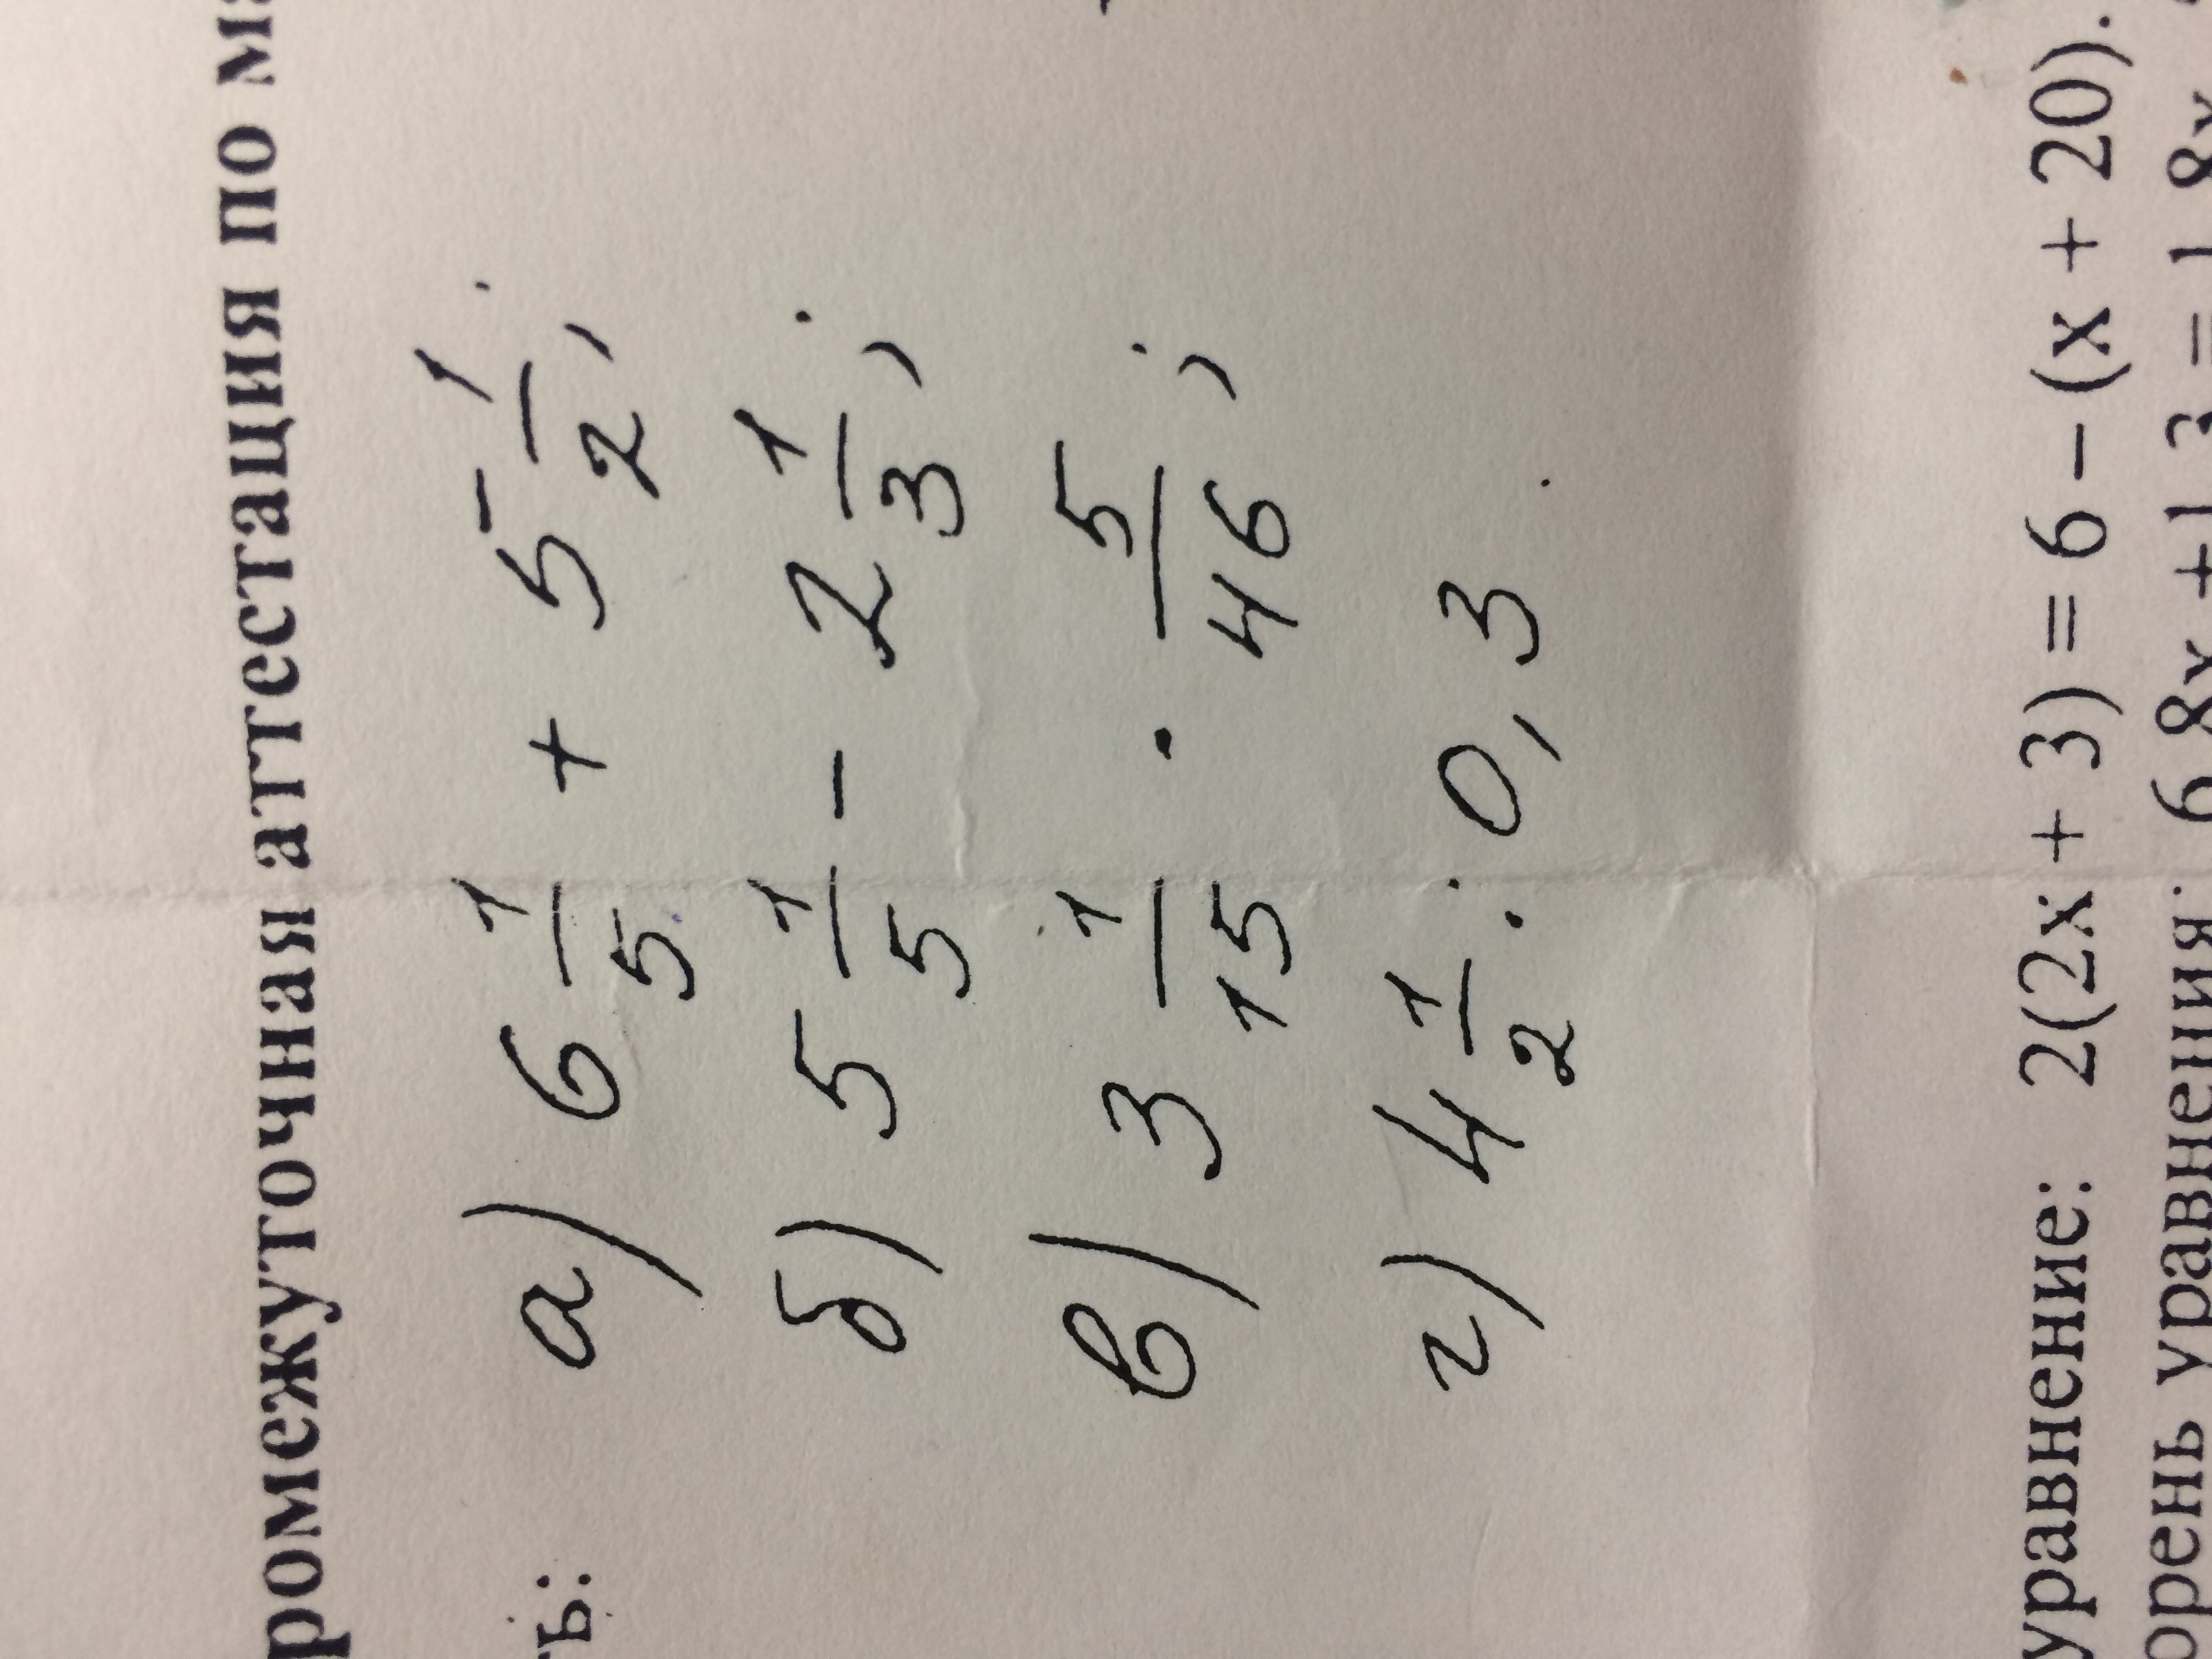 ромежуточная аттестация по ма
ть:
а) 6 1/5 + 5 1/2;
б) 5 1/5 - 2 1/3;
в) 3 1/15 · 5/46;
г) 4 1/2 : 0,3
уравнение: 2(2x + 3) = 6 – (x + 20).
орень уравнения: 6,8x +1,3 = 1,8x